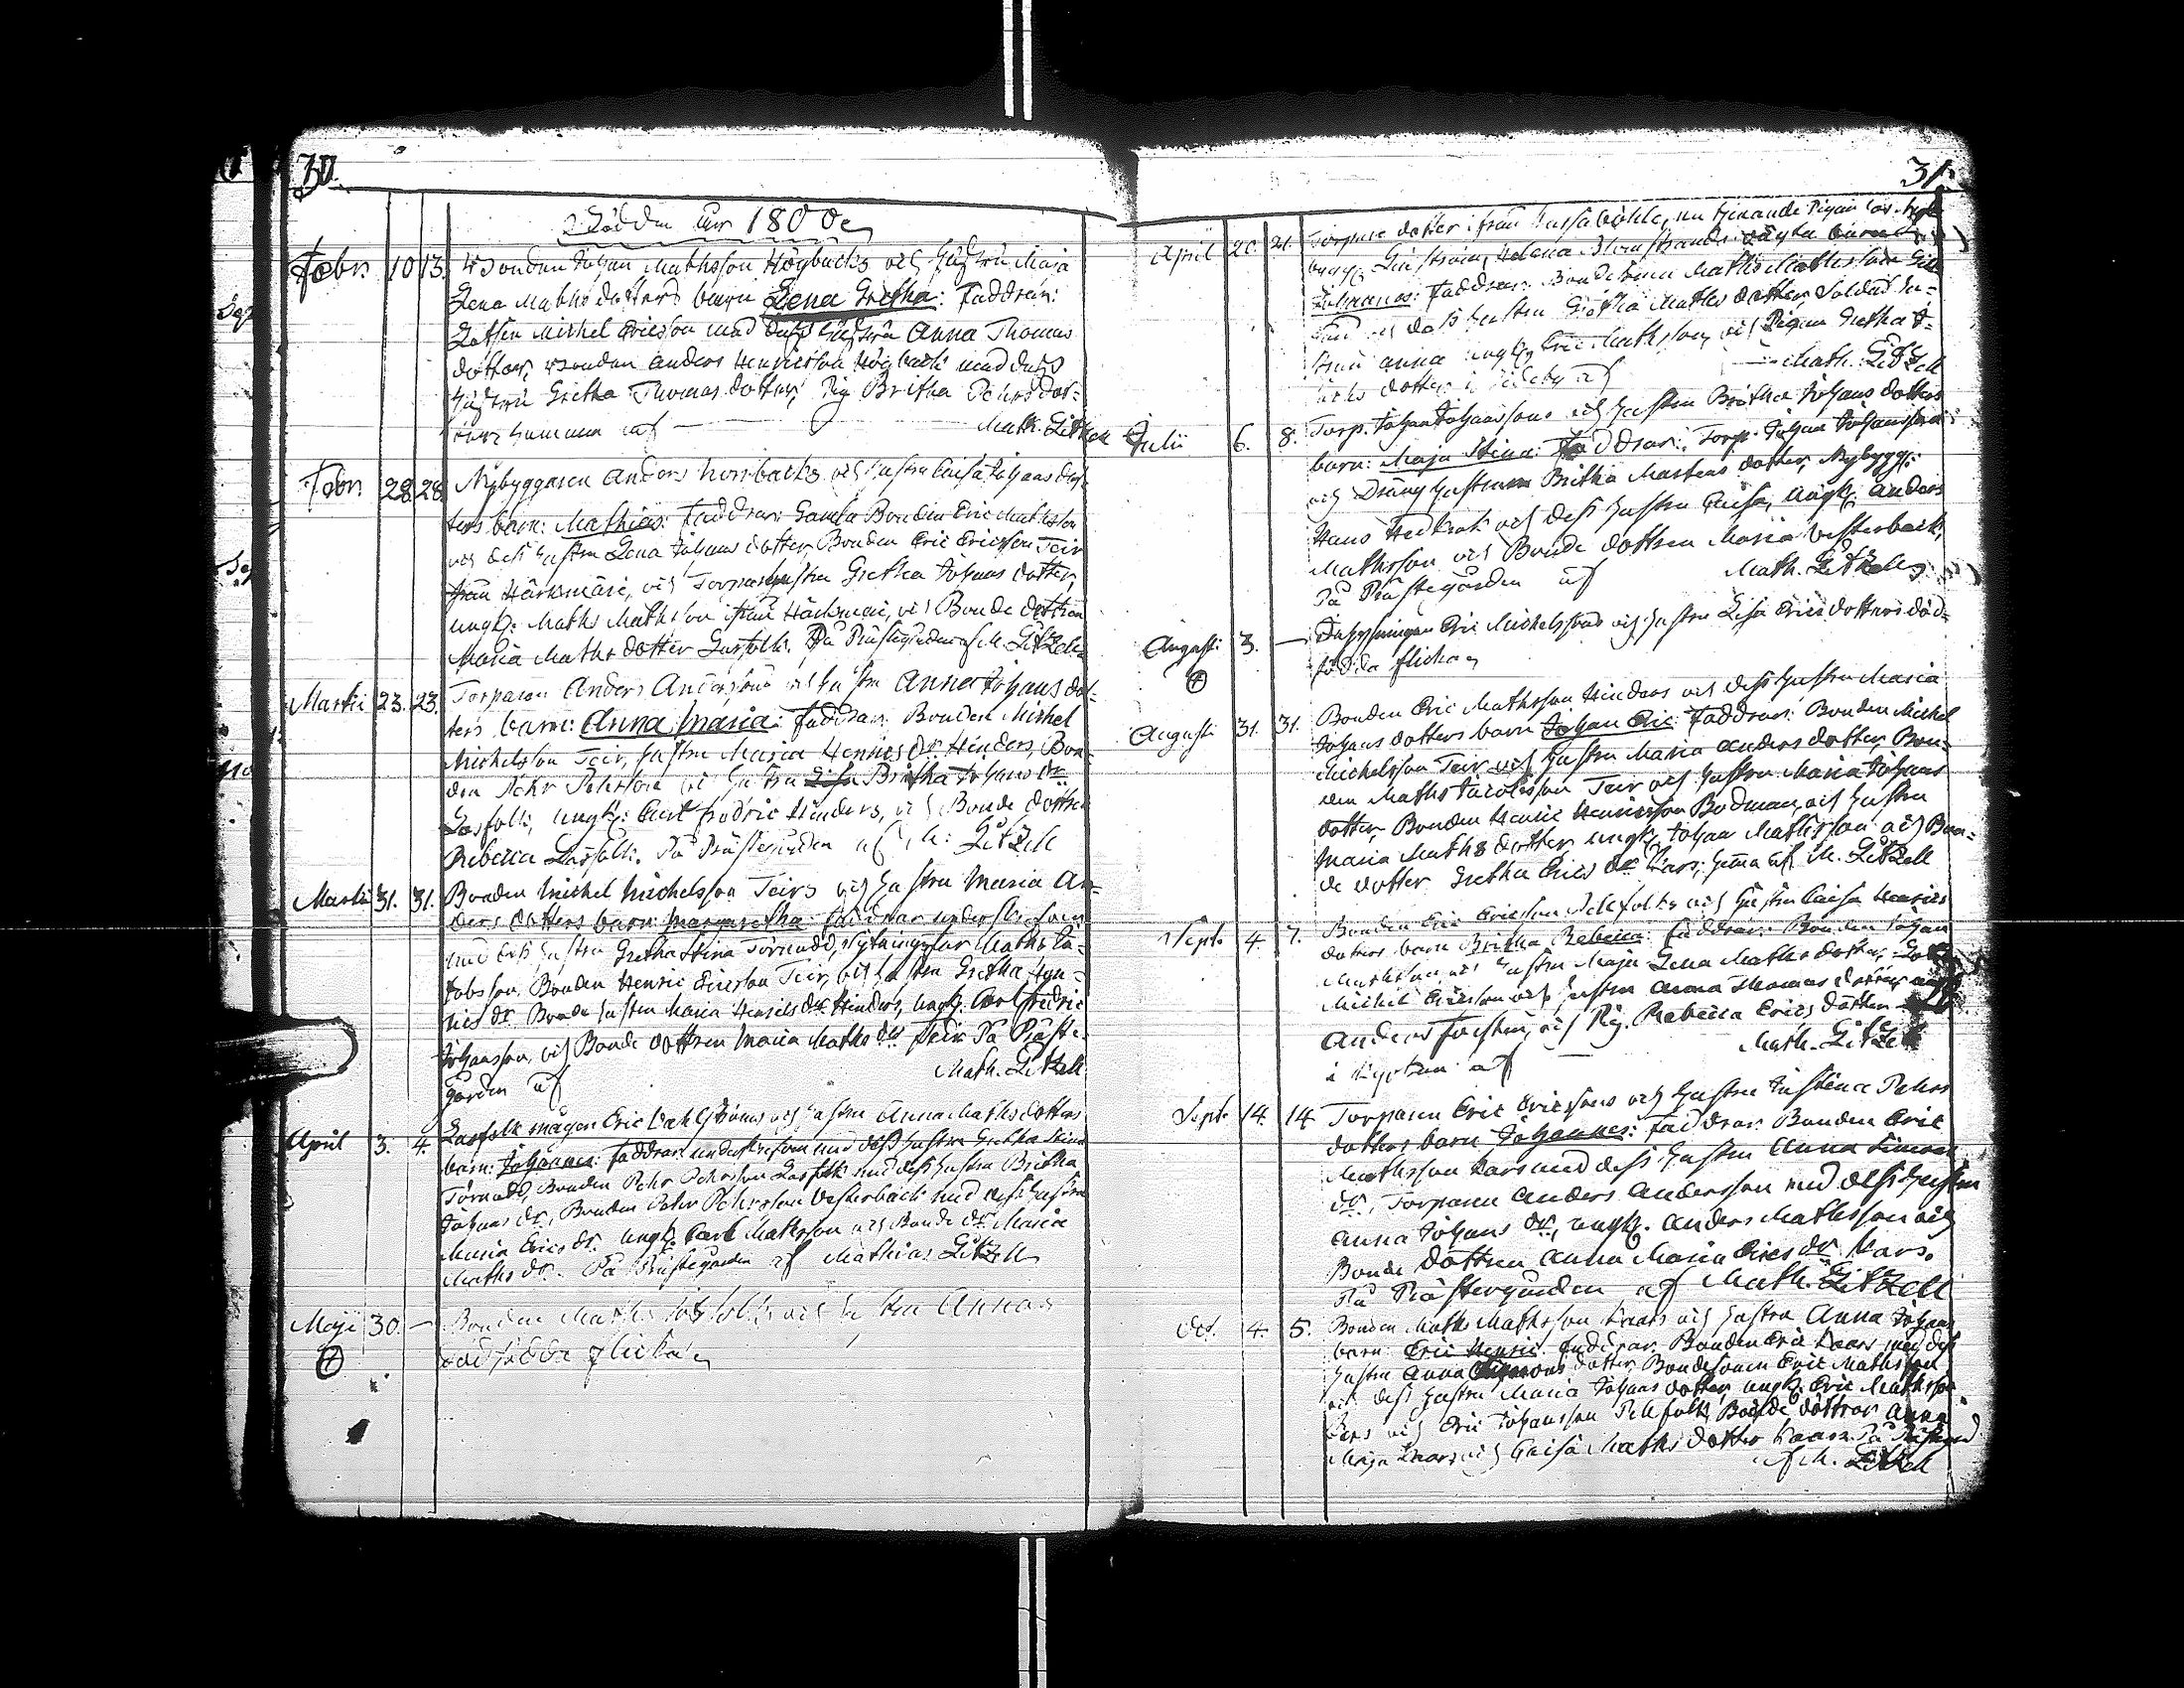 30.
Födde år 1800
Febr. 10 13. Bonden Johan Mathsson Högbacks och hustru Maja
Lena Maths dotters barn Lena Gretha: Faddrar:
Michel Ericsson med dess hustru Anna Thomas
dotter, Bonden Anders Henricsson Högback med dess
hustru Gretha Thomas dotter, Pig. Britha Pehrs dot-
af Math. Litzell
Febr. 28 28 Nybyggaren Anders och hustru Caisa Johans dot-
ters barn: Mathias: Faddrar: Gamla Bonden Eric Mathsson
och dess hustru Lena Johans dotter, Bonden Eric Ericsson Teir
från Härkmäri, och Torparhustru Gretha Johans dotter,
ungk. Maths Mathsson ifrån Härkmäri, och Bonde dottren
Maria Maths dotter Lassfolk. På Prästegården af M. Litzell
Martii 23. 23. Torparen Anders Anderssons och hustru Anna Johans dot-
ters barn: Anna Maria: Faddrar: Bonden Michel
Michelsson Teir, hustru Maria Henrics dr Hinders, Bon-
den Pehr Pehrsson och hustru Britha Johans dr
Lassfolk, ungk: Carl Fredric Hinders, och Bonde dottren
Rebecca Lassfolk. På Prästegården af M: Litzell
Martii 31. 31. Bonden Michel Michelsson Teirs och hustru Maria An-
ders dotters barn: Margaretha: Faddrar
med dess hustru Gretha Stina Törnudd, Maths Ja-
cobsson, Bonden Henric Ericsson Teir, och hustru Gretha Hen-
rics dr Bonde hustru Maria Henrics dr Hinders, ungk. Carl Fredric
Johansson, och Bonde dottren Maria Maths dr Teir. På Präste-
gården af Math. Litzell
April 3. 4. Lassfolk mågen Eric Dahlströms och hustru Anna Maths dotters
barn: Johannes: Faddrar: med dess hustru Gretha Stina
Törnudd, Bonden Pehr Pehrsson Lassfolk med dess hustru Britha
Johans dr, Bonden Peter Pehrsson Westerback med dess hustru
Maria Erics dr. ungk. Carl Mathsson och Bonde dr Maria
Maths dr. På Prästegården af Mathias Litzell
Maji 30. — Bonden Maths och hustru Annas
dödfödda flicka
31.
April 20. 21. Torpare dotter ifrån
Helena
Johannes: Faddrar: Bonde Maths Mathsson
och dess hustru Gretha Maths dotter, Soldat
Anna ungk. Eric Mathsson, och Pigan Gretha
dotter i af Math. Litzell
Julii 6. 8. Torp. Johan Johanssons och hustru Britha Johans dotters
barn: Maja Stina: Faddrar: Torp. Johan Johansson
och Dräng hustrun Britha Martens dotter, Nybygg:
Hans och dess hustru Caisa, ungk. Anders
Mathsson och Bonde dottren Maria Westerback,
På Prästegården af Math. Litzell
Augusti 3. — Eric Michelssons och hustru Lisa Erics dotters död-
födda flicka
Augusti 31. 31. Bonden Eric Mathsson Hinders och dess hustru Maria
Johans dotters barn Johan Eric: Faddrar: Bonden Michel
Michelsson Teir och hustru Maria Anders dotter, Bon-
den Maths Jacobsson Teir och hustru Maria Johans
dotter, Bonden Henric Henricsson Bodman, och hustru
Maria Maths dotter ungk. Johan Mathsson och Bon-
de dotter Gretha Erics dr Kars, hema af M. Litzell
Sept. 4. 7. Bonden Eric Ericsson Pellfolks och hustru Caisa Henrics
dotters barn Britha Rebecca: Faddrar: Bonden Johan
Mathsson och hustru Maja Lena Maths dotter,
Michel Ericsson och hustru Anna Thomas dotter,
Anders och Pig. Rebecca Erics dotter
i Kyrkan af Math. Litzell
Sept. 14. 14 Torparen Eric Ericssons och hustru Justina Pehrs
dotters barn Johannes: Faddrar: Bonden Eric
Mathsson Kars med dess hustru Anna Simons
dr, Torparen Anders Andersson med dess hustru
Anna Johans dr, ungk. Anders Mathsson och
Bonde dottren Anna Maria Erics dr Kars.
På Prästegården af Math. Litzell
Oct. 4. 5. Bonden Maths Mathsson Knars och hustru Anna Johans
barn: Eric Henric. Faddrar: Bonden Eric Kaars med dess
hustru Anna Simons dotter, Bondesonen Eric Mathsson
och dess hustru Maria Johans dotter, ungk. Eric Mathsson
och Eric Johansson Pellfolk, Bonde döttrar Anna
Maja Knars och Caisa Maths dotter Kaars. På Prästegård
af M. Litzell